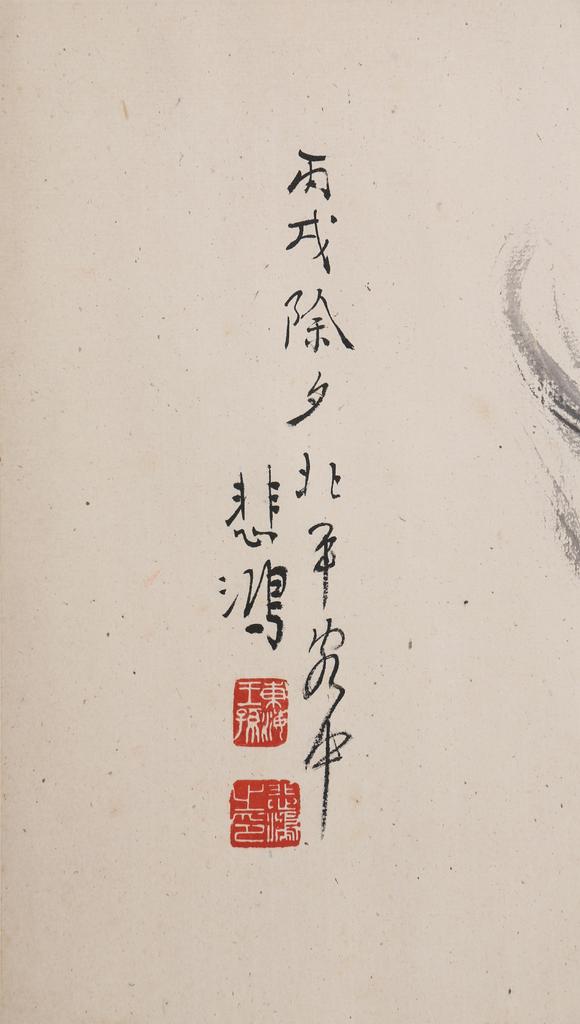 丙戌除夕北平客中
悲鴻
東海王孫
悲鴻之印